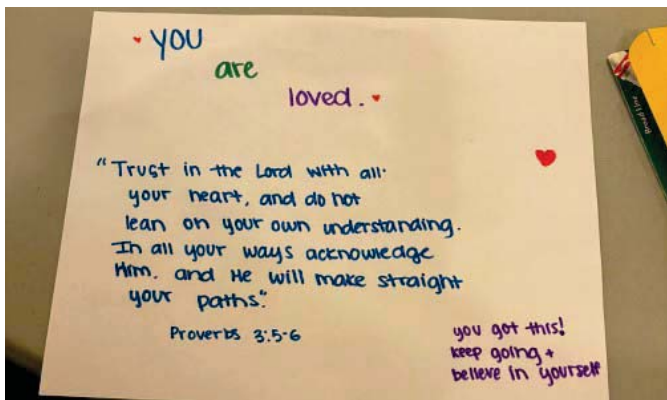 YOU
are
loved.
"Trust in the Lord with all
your heart, and do not
lean on your own understanding.
In all your ways acknowledge
Him, and He will make straight
your paths."
Proverbs 3:5-6
you got this!
keep going +
believe in yourself
Broad Line